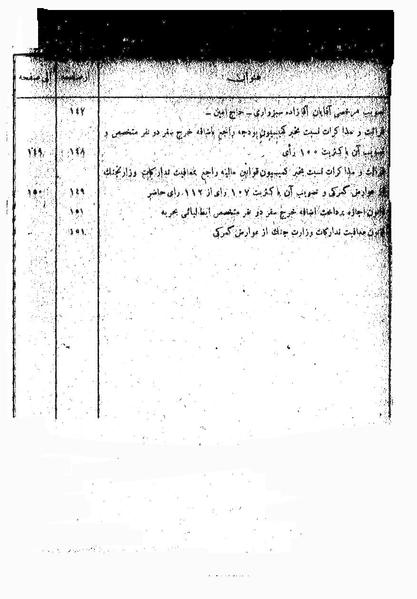 عنوان از صفحه الی صفحه
تصویب مرخصی آقایان آقازاده سبزواری ـ حاج امین ـ ۱۴۷
قرائت و مذاکرات نسبت بخبر کمیسیون بودجه راجع باضافه خرج سفر دو نفر متخصص و
تصویب آن باکثریت ۱۰۰ رأی ۱۴۸ ۱۴۹
قرائت و مذاکرات نسبت بخبر کمیسیون قوانین مالیه راجع بمعافیت تدارکات وزارتجنگ
از عوارض گمرکی و تصویب آن باکثریت ۱۰۷ رأی از ۱۱۲ رأی حاضر ۱۴۹ ۱۵۰
قانون اجازه پرداخت اضافه خرج سفر دو نفر متخصص ایطالیائی بحریه ۱۵۱
قانون معافیت تدارکات وزارت جنگ از عوارض گمرکی ۱۵۱